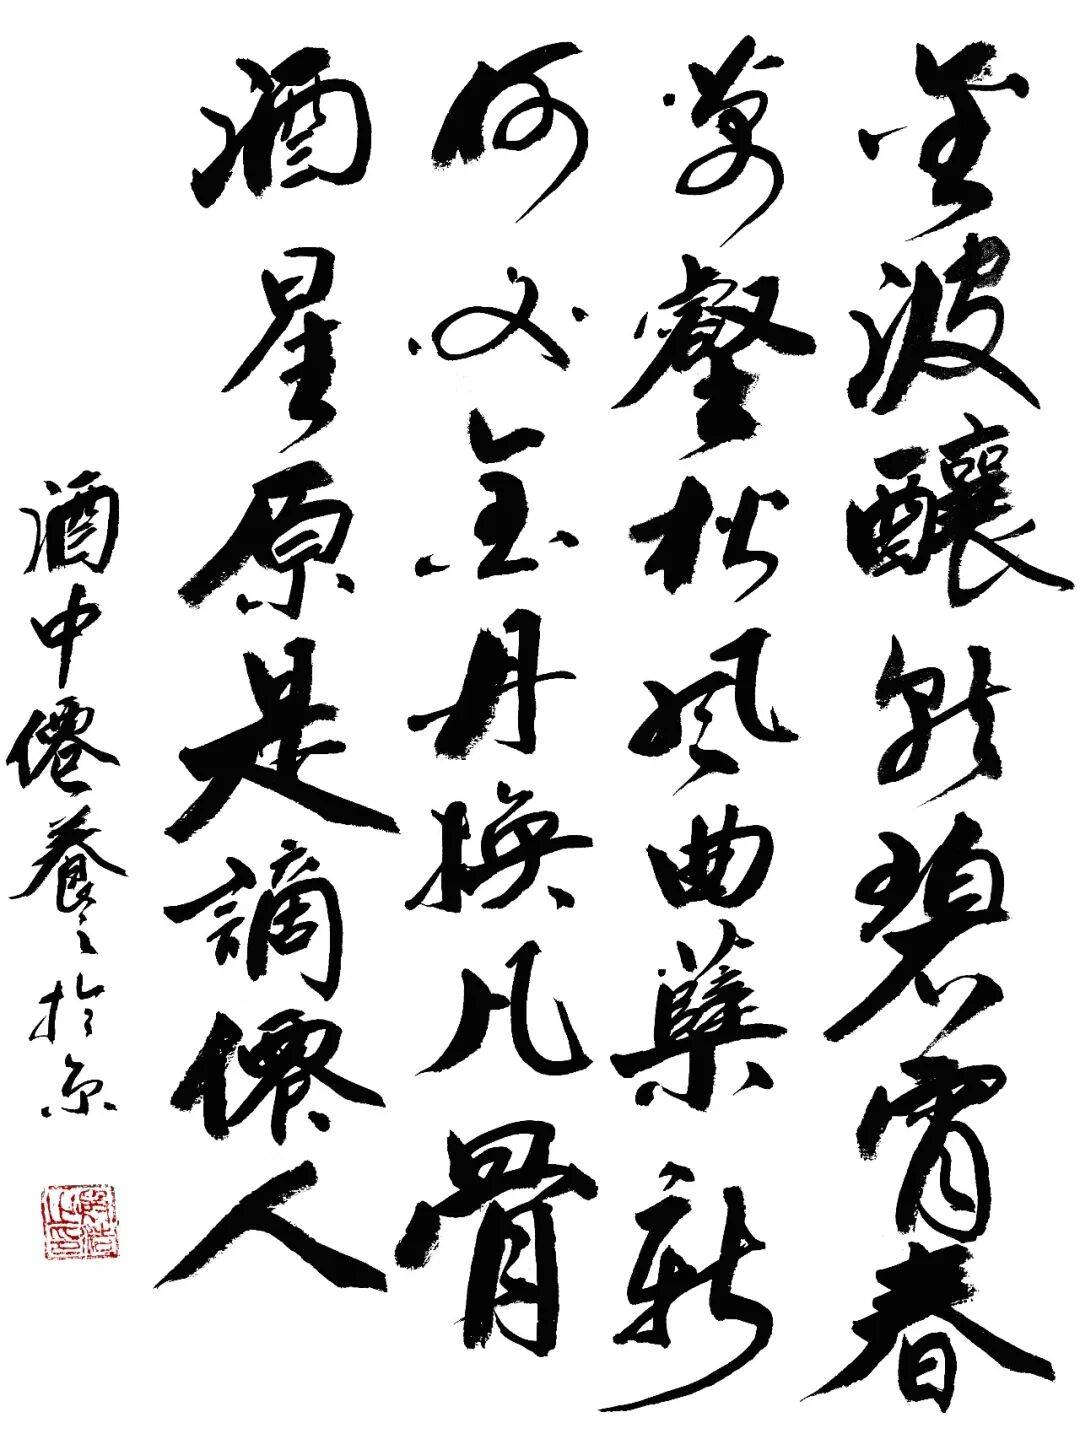 金波釀就碧霄春
萬壑松風曲蘖新
何必金丹換凡骨
酒星原是謫僊人
酒中僊養之於京